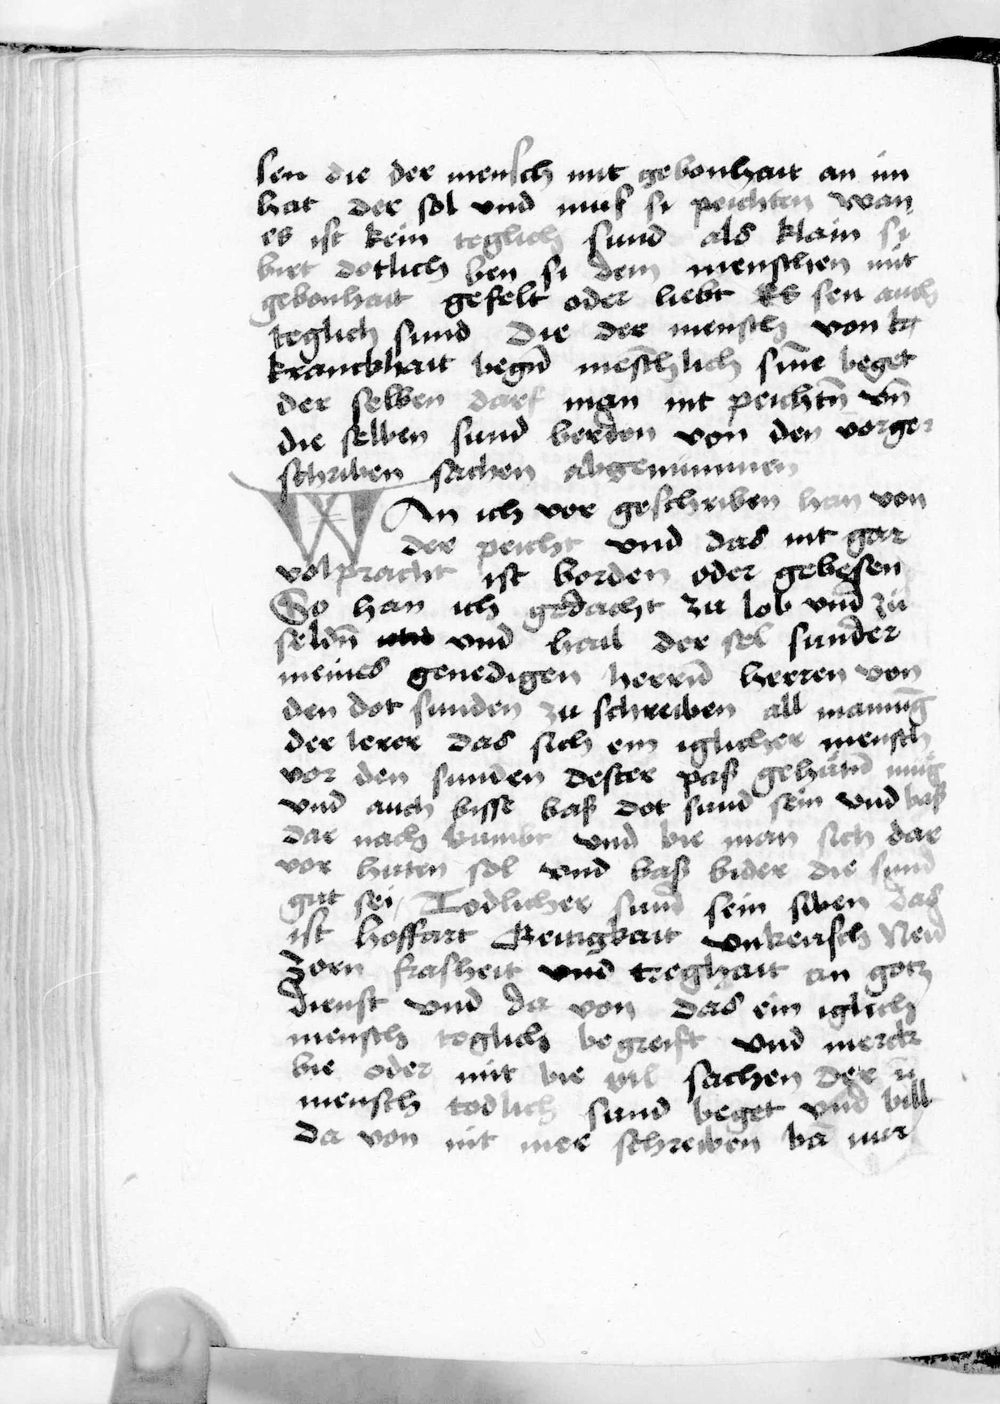 sen die der mensch mit gebonhait an im
hat der sol und mus si peichten wan
es ist kein teglich sund als klain si
birt dotlich ben si dem menschen mit
gebonhait gefelt oder liebt Es sen auch
teglich sund die der mensch von kr
kranckhait begū meschlich sinē beget
der selben darf man nit peichtn̄ vn̄
die selben sund berden von den vorge
schriben sachen abgenummen
WAn ich vor geschriben han von
der peicht und das nit gar
volpracht ist borden oder gebesen
So han ich gedacht zu lob und zu
seldn̄ und hail der sel sunder
meines genedigen herrn̄ herren von
den dot sunden zu schreiben all mainūg
der lerer das sich ein iglicher mensch
vor den sunden dester paß gehutn̄ mug
und auch bisse baß dot sund sein und baß
dar nach kumbt und bie man sich dar
vor huten sol und baß bider die sund
gut sei Todlicher sund sein siben das
ist hoffart Geitigkait unkeusch Neid
Zorn frasheit und treghait an gotz
dienst und da von das ein iglich
mensch teglich begreift und merck
bie oder mit bie vil sachen der
mensch todlich sund beget und bill
da von nit mer schreiben bā nur